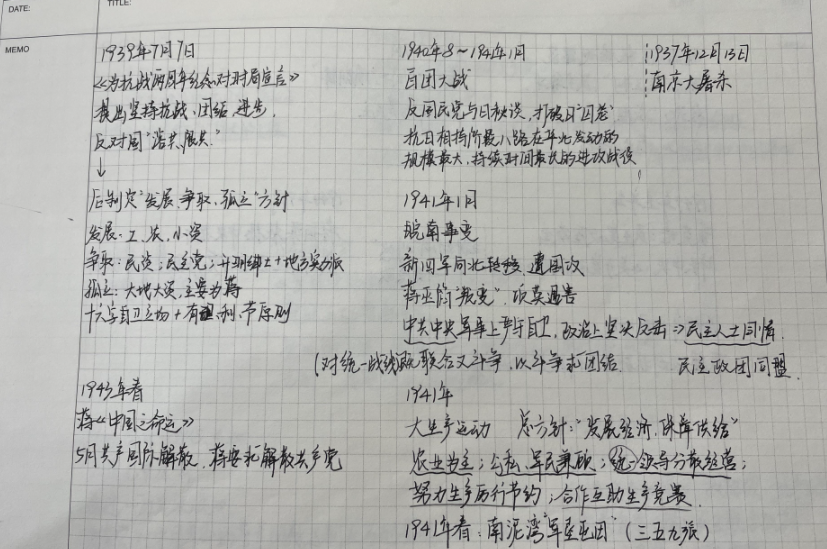 DATE:
TITLE:
MEMO
1939年7月7日
《为抗战两周年纪念对时局宣言》
提出坚持抗战、团结、进步.
反对国"溶共、限共."
↓
后制定"发展、争取、孤立"方针
发展:工、农、小资
争取:民资;民主党;开明绅士+地方实力派
孤立:大地大资,主要为蒋
十六字自卫立场+有理、利、节原则
1943年春
蒋《中国之命运》
5月共产国际解散,蒋要求解散共产党
1940年8~1941年1月
百团大战
反国民党与日秘谈,打破日"囚笼"
抗日相持阶段八路在华北发动的
规模最大,持续时间最长的进攻战役
1941年1月
皖南事变
新四军向北转移 遭国攻
蒋亚陷"叛变",项英遇害
中共中央军事上严守自卫,政治上坚决反击⇒民主人士同情.
(对统一战线既联合又斗争,以斗争求团结. 民主政团同盟.
1941年
大生产运动 总方针:"发展经济,保障供给"
农业为主;公私、军民兼顾;统一领导分散经营;
努力生产厉行节约;合作互助生产竞赛
1941年春:南泥湾"军垦屯田"(三五九旅)
1937年12月13日
南京大屠杀